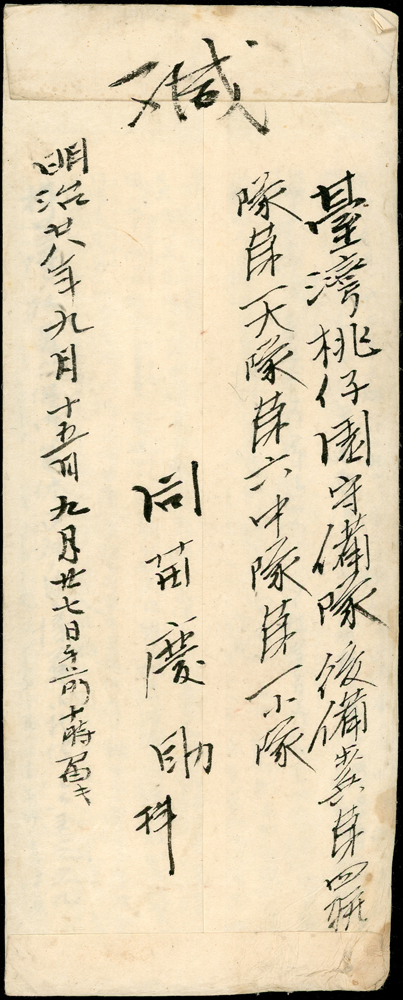 緘
臺灣桃仔園守備隊後備歩兵第四聯
隊第一大隊第六中隊第一小隊
向 慶助拝
明治廿八年九月十五日 九月廿七日午前十時届キ